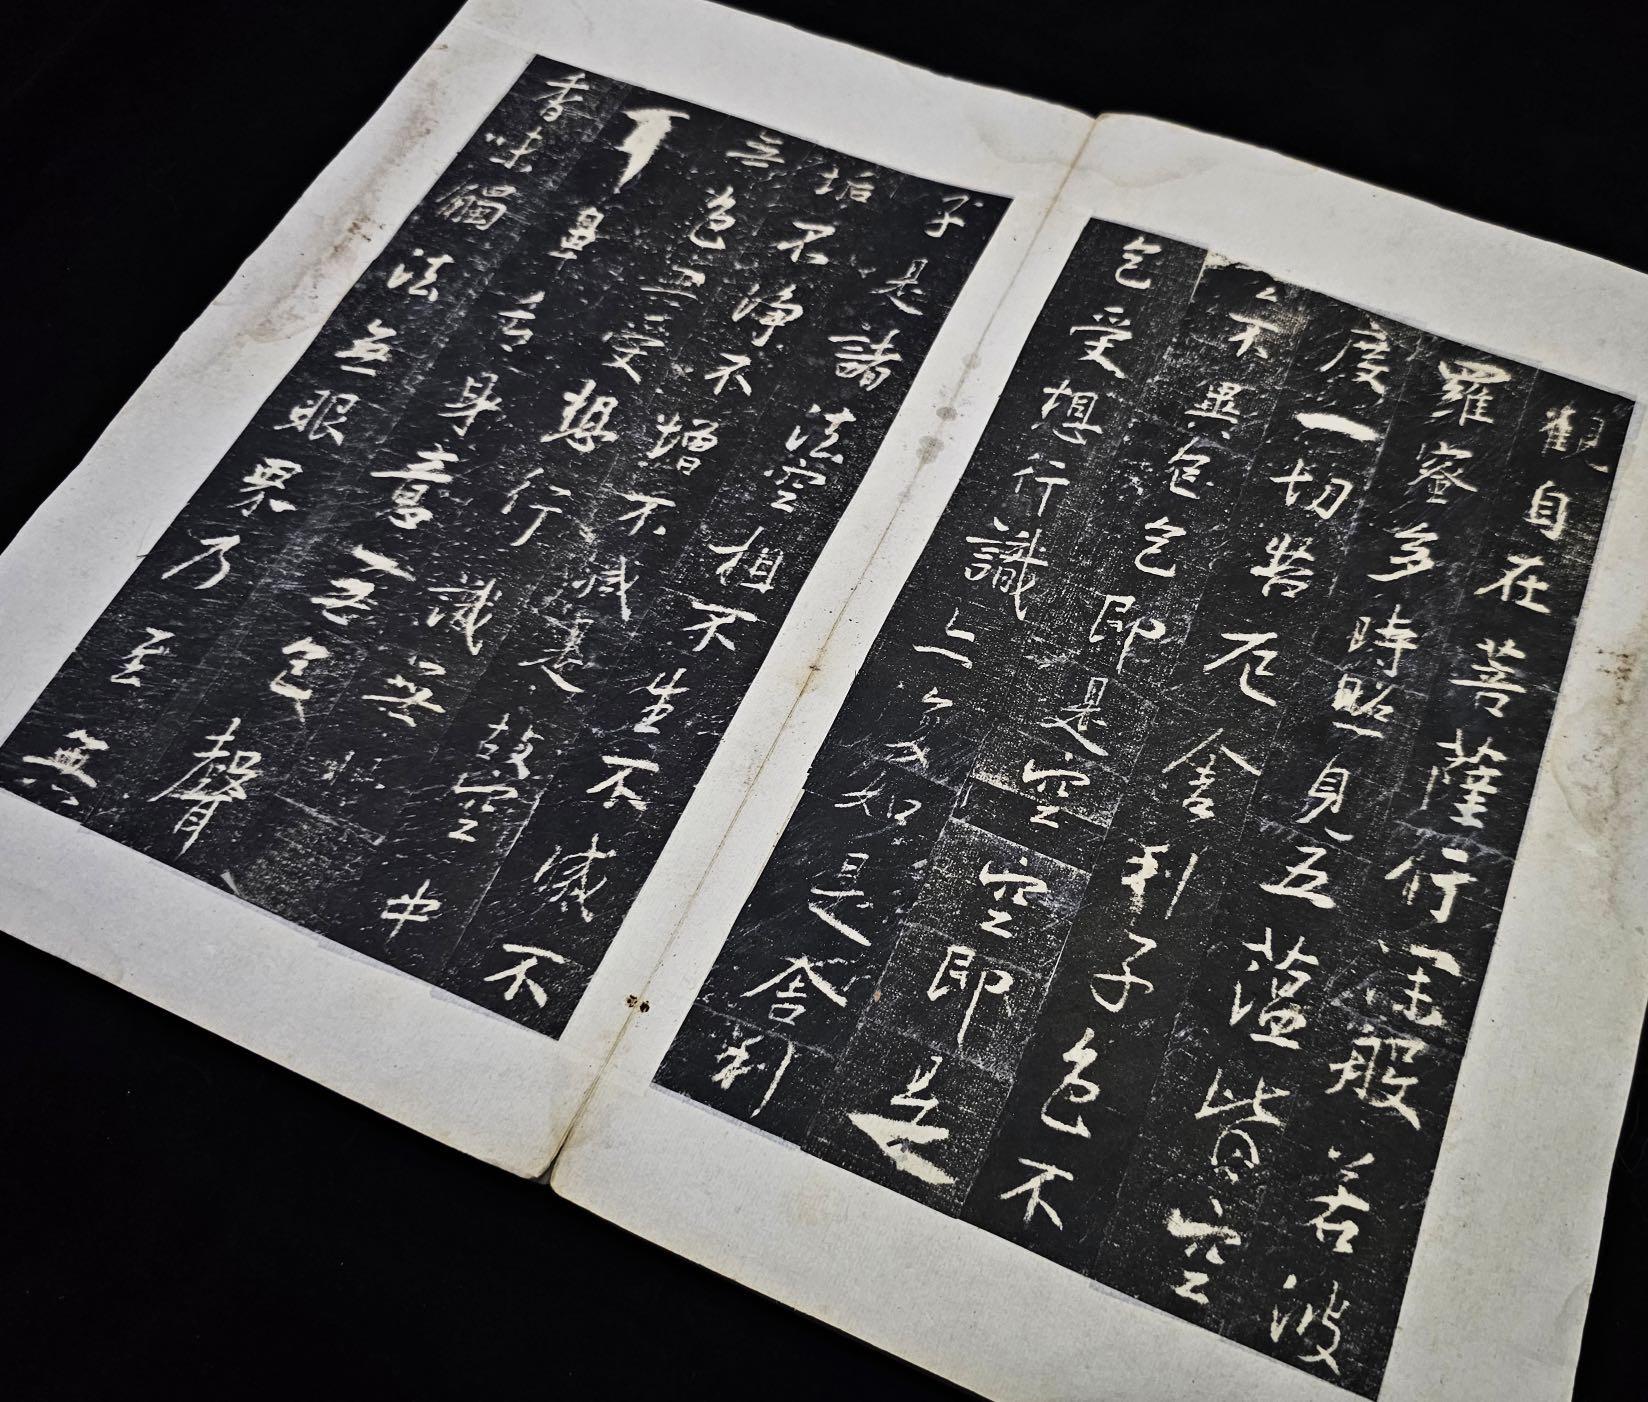 觀自在菩薩行深般若波
羅蜜多時照見五蘊皆空
度一切苦厄舍利子色不
不異色色即是空空即是
色受想行識亦復如是舍利
子是諸法空相不生不滅不
垢不淨不增不減是故空中
無色無受想行識無
耳鼻舌身意無色聲
香味觸法無眼界乃至無